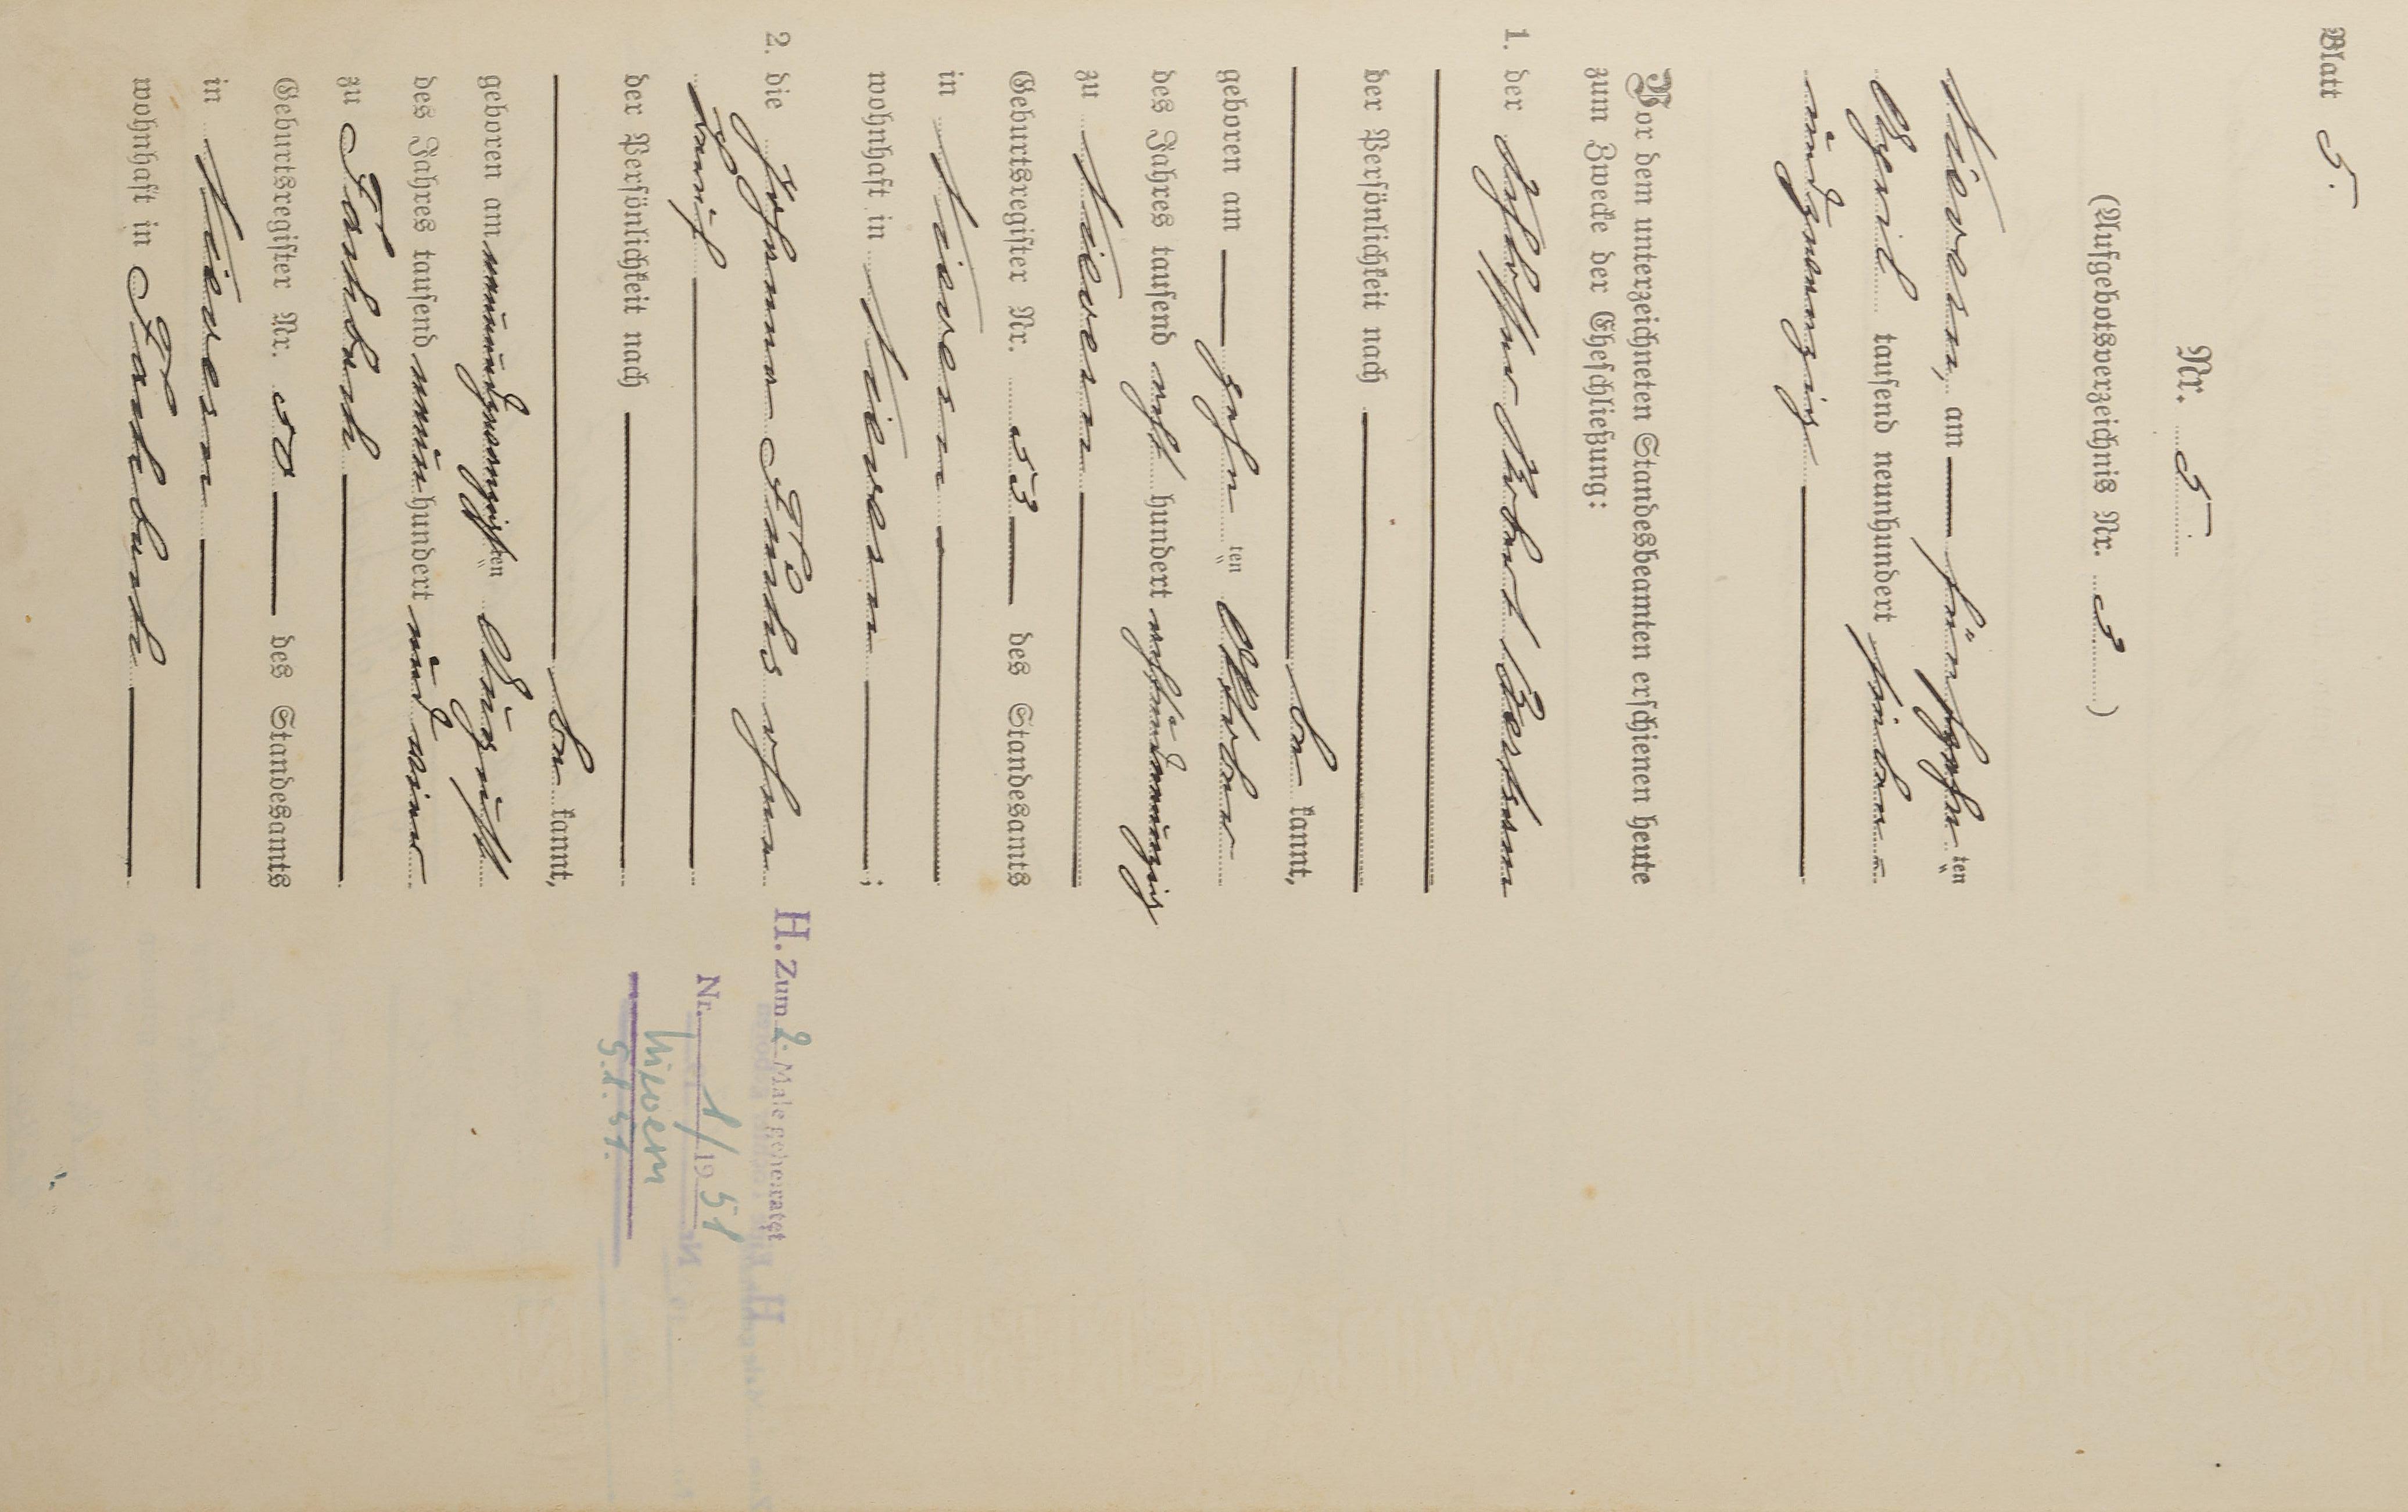 Blatt 5.
Nr. 5.
(Aufgebotsverzeichnis Nr. 3)
Kievern, am — fünfzehn ten
April tausend neunhundert sieben
undzwanzig
Vor dem unterzeichneten Standesbeamten erschienen heute
zum Zwecke der Eheschließung:
1. der
der Persönlichkeit nach
be kannt,
geboren am — zehn ten Oktober
des Jahres tausend acht hundert achtundneunzig
zu Kievern
Geburtsregister Nr. 53 — des Standesamts
in Kievern
wohnhaft in Kievern ;
2. die Johanna ohne
Beruf
der Persönlichkeit nach
be kannt,
geboren am neunundzwanzigsten August
des Jahres tausend neun hundert und eins
zu
Geburtsregister Nr. 50 — des Standesamts
in Kievern
wohnhaft in
H. Zum 2. Male geheiratet
Nr. 1/1951
5.1.51.